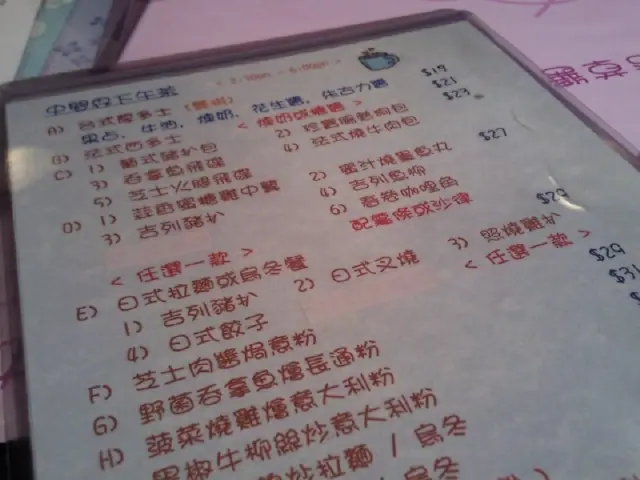 下午茶
< 2:30pm - 6:00pm >
A) 台式厚多士 $19
果占, 牛油, 煉奶, 花生醬, 朱古力醬
B) 法式西多士 < 煉奶或糖醬 > $21
C) 1) 葡式豬扒包 $23
3) 吞拿魚飛碟 4) 法式燒牛肉包
5) 芝士火腿飛碟
D) 1) 蒜香蜜糖雞中翼 2) 蜜汁燒魚丸 $27
3) 吉列豬扒 4) 吉列魚柳
6) 香卷咖喱角
配薯條或沙律
< 任選一款 >
E) 日式拉麵或烏冬餐 $29
1) 吉列豬扒 2) 日式叉燒 3) 照燒雞扒
4) 日式餃子 < 任選一款 >
F) 芝士肉醬焗意粉 $29
G) 野菌吞拿魚燴長通粉 $31
H) 菠菜燒雞燴意大利粉
黑椒牛柳絲炒意大利粉
炒拉麵 / 烏冬